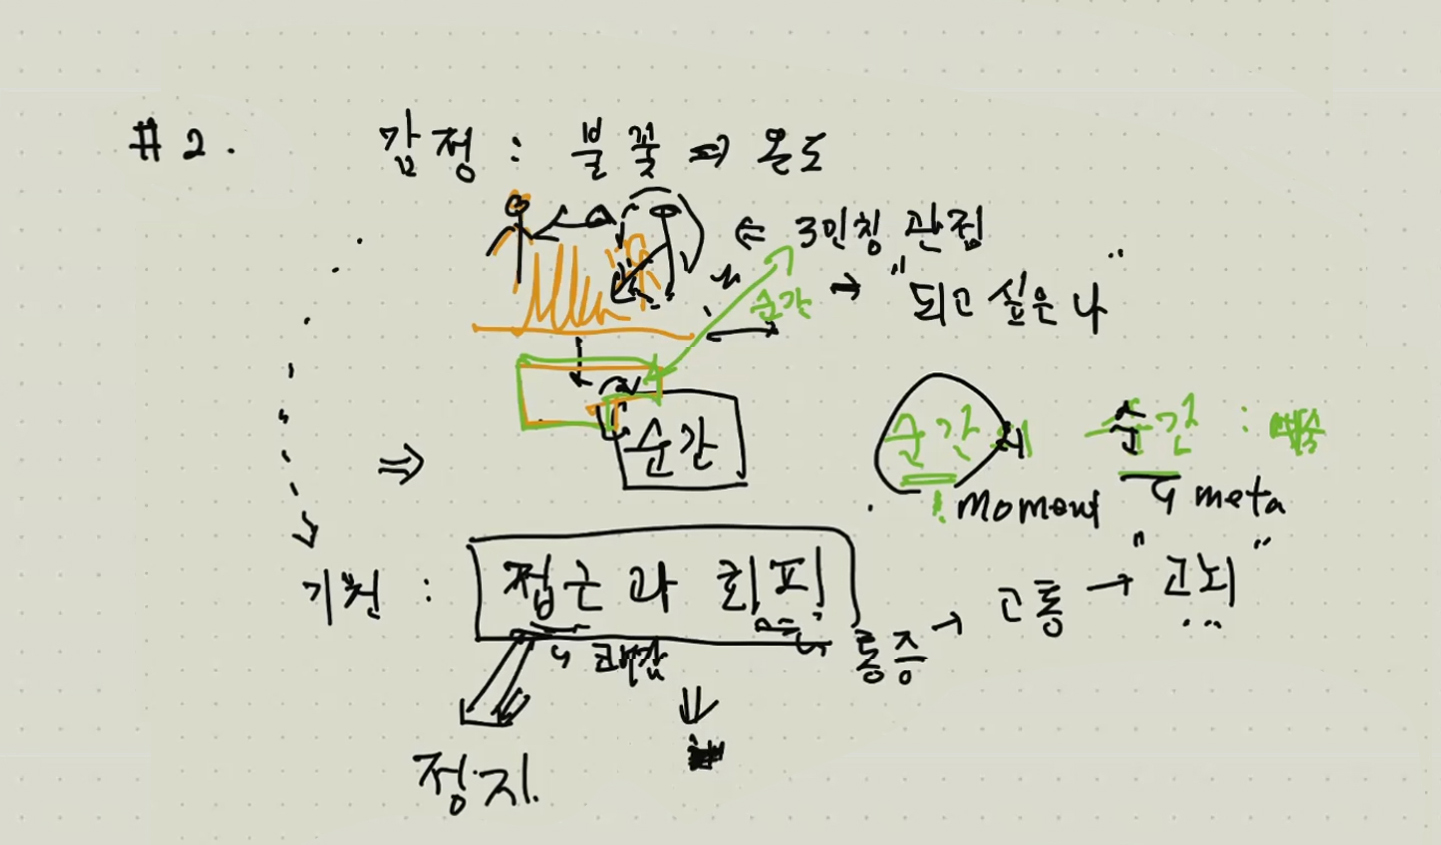 #2. 감정 : 불꽃 ⇒ 온도
⇐ 3인칭 관점
순간 → "되고 싶은 나"
⇒ 순간
순간의 순간 :
! moment ↳ meta
기원 : 접근과 회피
↳ 쾌감 통증 → 고통 → "고뇌"
...
정지.